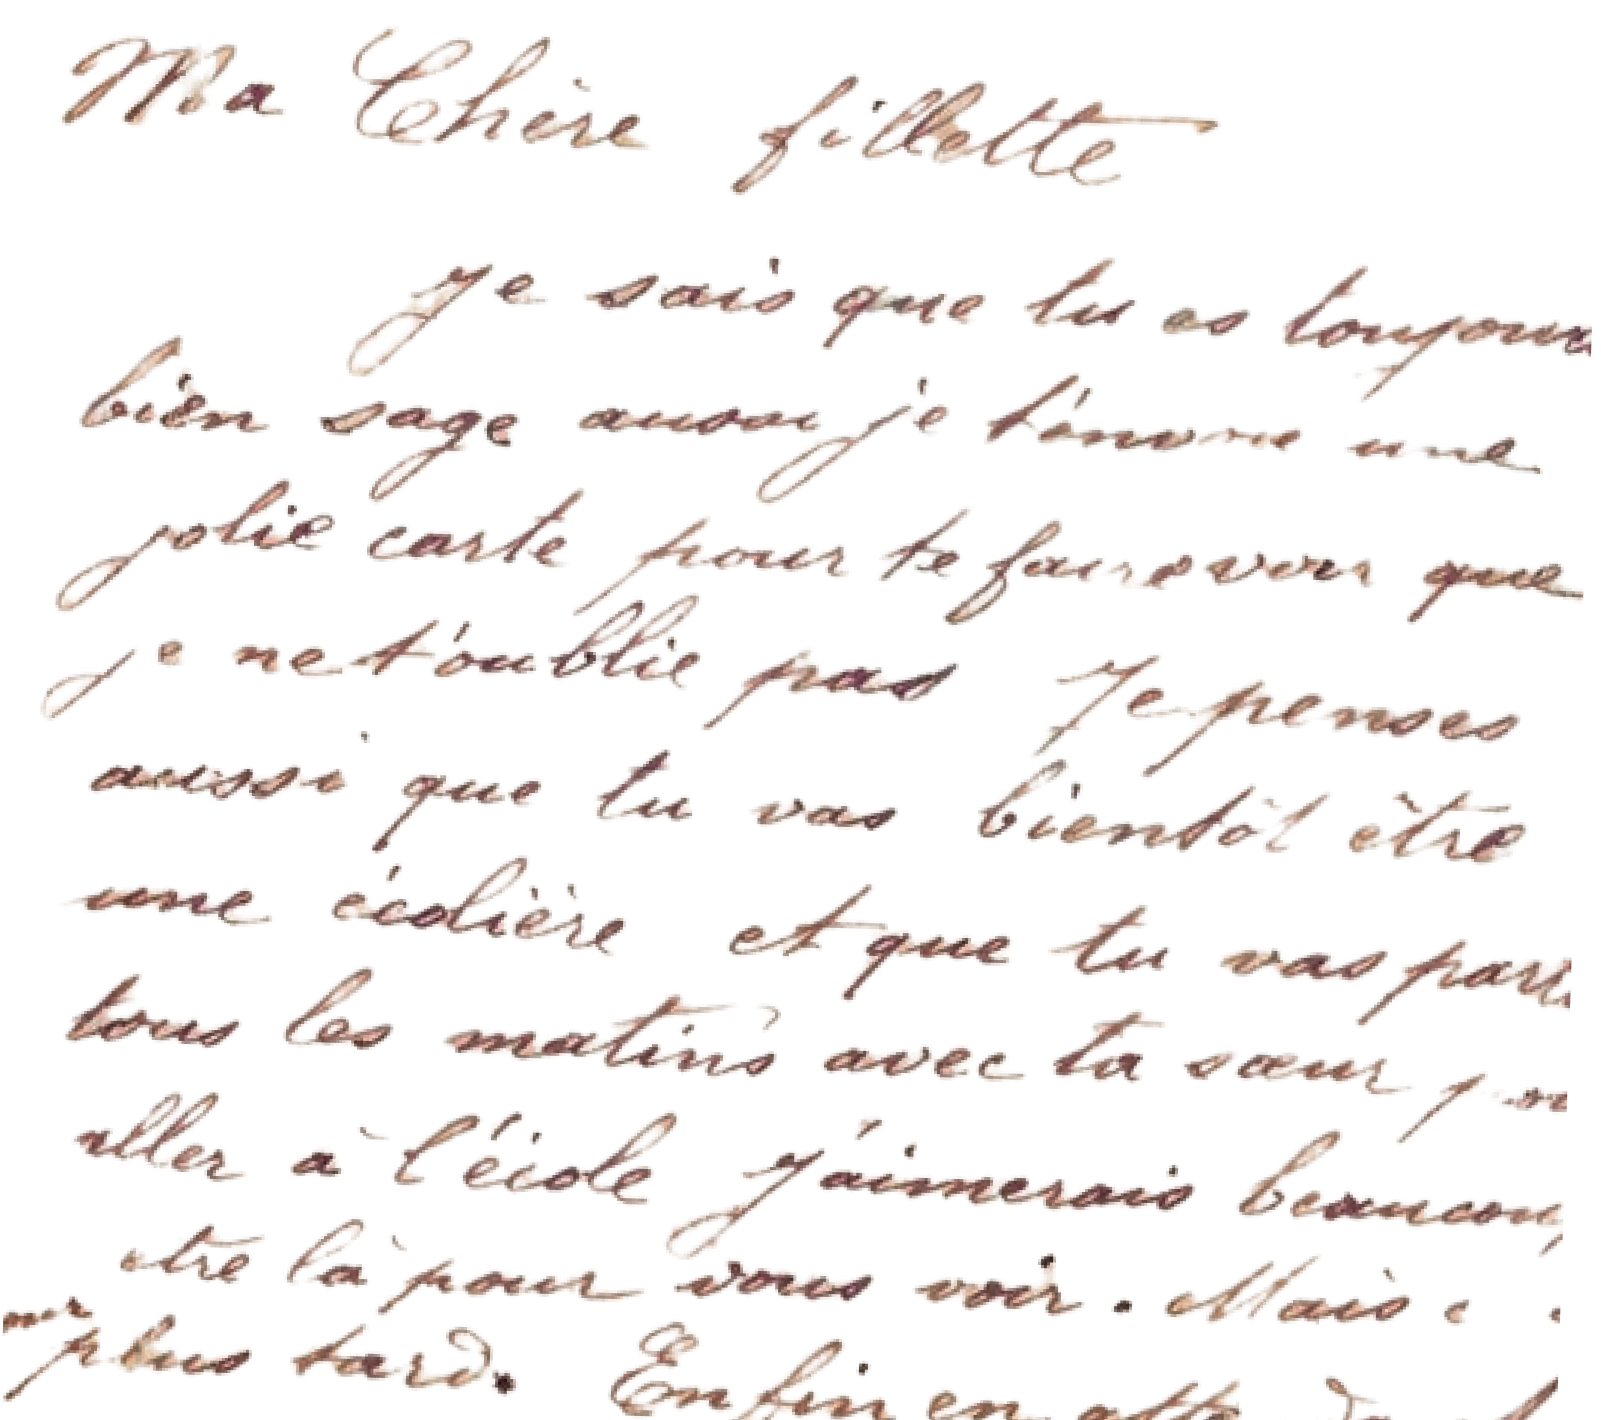 Ma Chère fillette
Je sais que tu es toujours
bien sage aussi je t'envoie une
jolie carte pour te faire voir que
je ne t'oublie pas Je penses
aussi que tu vas bientôt être
une écolière et que tu vas
tous les matins avec ta sœur
aller à l'école J'aimerais
etre là pour vous voir. Mais
plus tard. Enfin en